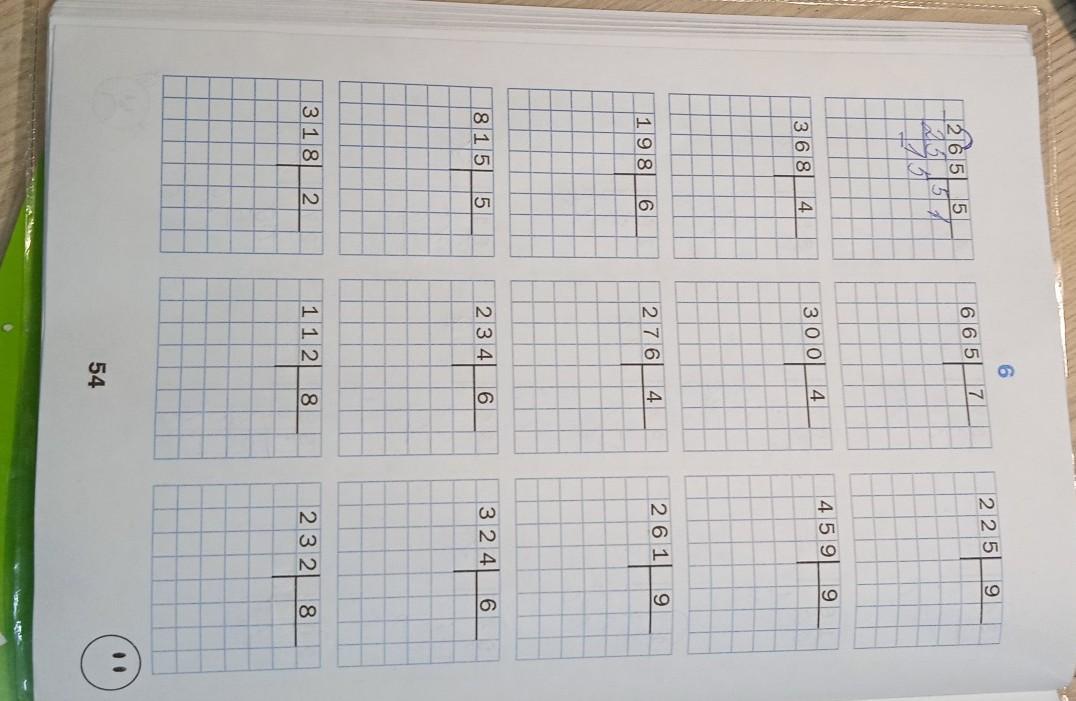 6
265 5 665 7 225 9
25 51
15
368 4 300 4 459 9
198 6 276 4 261 9
815 5 234 6 324 6
318 2 112 8 232 8
54